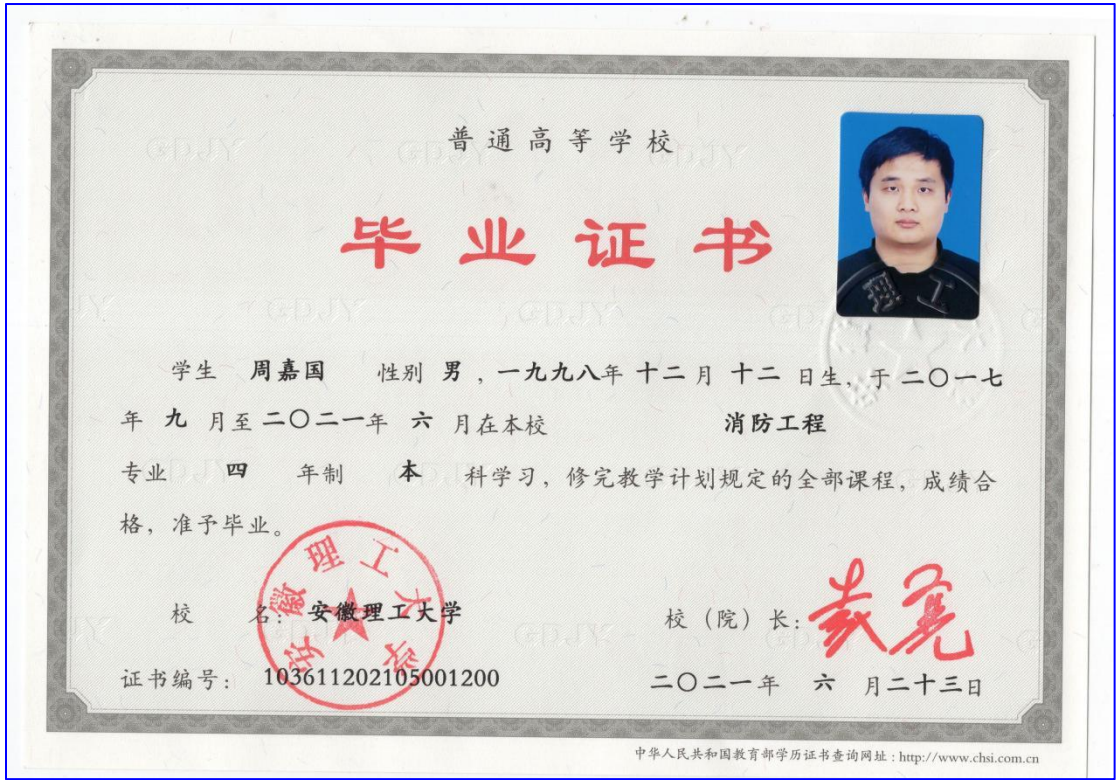 普通高等学校
毕业证书
学生 周嘉国 性别 男 , 一九九八年 十二月 十二 日生, 于 二〇一七
年 九 月至 二〇二一年 六 月在本校 消防工程
专业 四 年制 本 科学习, 修完教学计划规定的全部课程, 成绩合
格, 准予毕业。
校 名: 安徽理工大学
校（院）长:
证书编号: 103611202105001200
二〇二一年 六 月二十三日
安徽理工大学
理工
中华人民共和国教育部学历证书查询网址 : http://www.chsi.com.cn